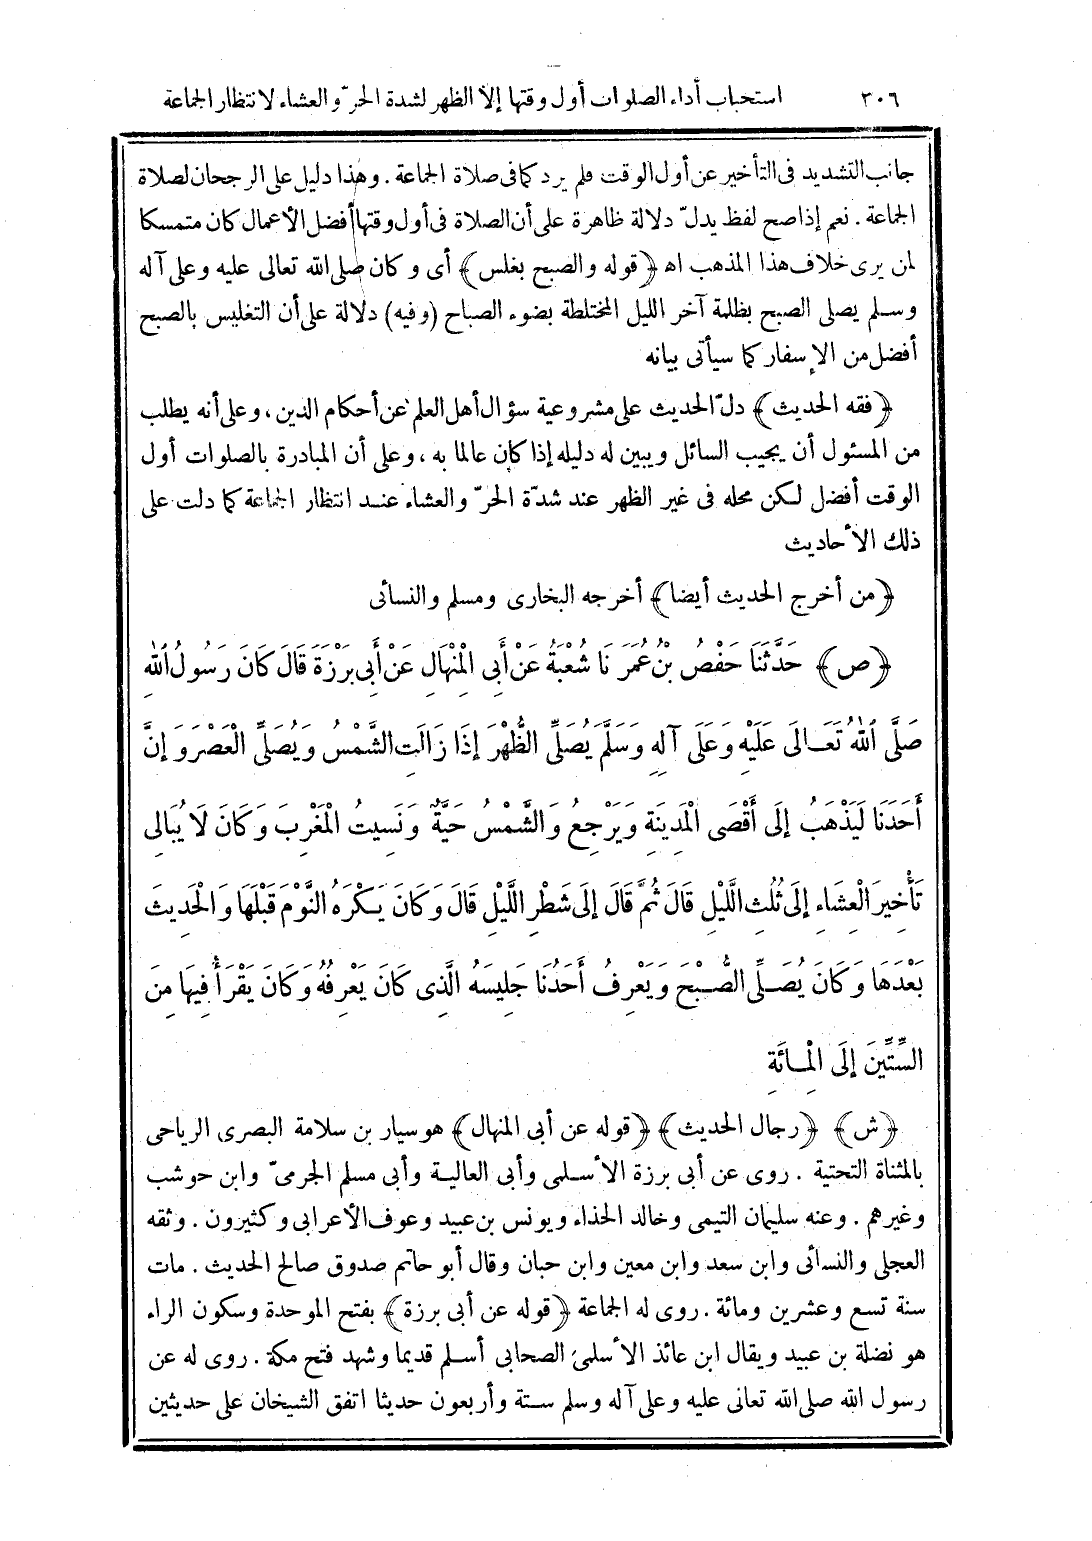 ٣٠٦ استحباب أداء الصلوات أول وقتها إلا الظهر لشدة الحرّ والعشاء لانتظار الجماعة
جانب التشديد فى التأخير عن أول الوقت فلم يرد كما فى صلاة الجماعة . وهذا دليل على الرجحان لصلاة
الجماعة . نعم إذا صح لفظ يدلّ دلالة ظاهرة على أن الصلاة فى أول وقتها أفضل الأعمال كان متمسكا
لمن يرى خلاف هذا المذهب اه ﴿قوله والصبح بغلس﴾ أى وكان صلى الله تعالى عليه وعلى آله
وسلم يصلى الصبح بظلمة آخر الليل المختلطة بضوء الصباح (وفيه) دلالة على أن التغليس بالصبح
أفضل من الإسفار كما سيأتى بيانه
﴿فقه الحديث﴾ دلّ الحديث على مشروعية سؤال أهل العلم عن أحكام الدين ، وعلى أنه يطلب
من المسئول أن يجيب السائل ويبين له دليله إذا كان عالما به ، وعلى أن المبادرة بالصلوات أول
الوقت أفضل لكن محله فى غير الظهر عند شدّة الحرّ والعشاء عند انتظار الجماعة كما دلت على
ذلك الأحاديث
﴿من أخرج الحديث أيضا﴾ أخرجه البخارى ومسلم والنسائى
﴿ص﴾ حَدَّثَنَا حَفْصُ بْنُ عُمَرَ نَا شُعْبَةُ عَنْ أَبِى الْمِنْهَالِ عَنْ أَبِى بَرْزَةَ قَالَ كَانَ رَسُولُ اللهِ
صَلَّى اللهُ تَعَالَى عَلَيْهِ وَعَلَى آلِهِ وَسَلَّمَ يُصَلِّى الظُّهْرَ إِذَا زَالَتِ الشَّمْسُ وَيُصَلِّى الْعَصْرَ وَإِنَّ
أَحَدَنَا لَيَذْهَبُ إِلَى أَقْصَى الْمَدِينَةِ وَيَرْجِعُ وَالشَّمْسُ حَيَّةٌ وَنَسِيتُ الْمَغْرِبَ وَكَانَ لَا يُبَالِى
تَأْخِيرَ الْعِشَاءِ إِلَى ثُلُثِ اللَّيْلِ قَالَ ثُمَّ قَالَ إِلَى شَطْرِ اللَّيْلِ قَالَ وَكَانَ يَكْرَهُ النَّوْمَ قَبْلَهَا وَالْحَدِيثَ
بَعْدَهَا وَكَانَ يُصَلِّى الصُّبْحَ وَيَعْرِفُ أَحَدُنَا جَلِيسَهُ الَّذِى كَانَ يَعْرِفُهُ وَكَانَ يَقْرَأُ فِيهَا مِنَ
السِّتِّينَ إِلَى الْمِائَةِ
﴿ش﴾ ﴿رجال الحديث﴾ ﴿قوله عن أبى المنهال﴾ هو سيار بن سلامة البصرى الرياحى
بالمثناة التحتية . روى عن أبى برزة الأسلمى وأبى العالية وأبى مسلم الجرمىّ وابن حوشب
وغيرهم . وعنه سليمان التيمى وخالد الحذاء ويونس بن عبيد وعوف الأعرابى وكثيرون . وثقه
العجلى والنسائى وابن سعد وابن معين وابن حبان وقال أبو حاتم صدوق صالح الحديث . مات
سنة تسع وعشرين ومائة . روى له الجماعة ﴿قوله عن أبى برزة﴾ بفتح الموحدة وسكون الراء
هو نضلة بن عبيد ويقال ابن عائذ الأسلمى الصحابى أسلم قديما وشهد فتح مكة . روى له عن
رسول الله صلى الله تعالى عليه وعلى آله وسلم ستة وأربعون حديثا اتفق الشيخان على حديثين